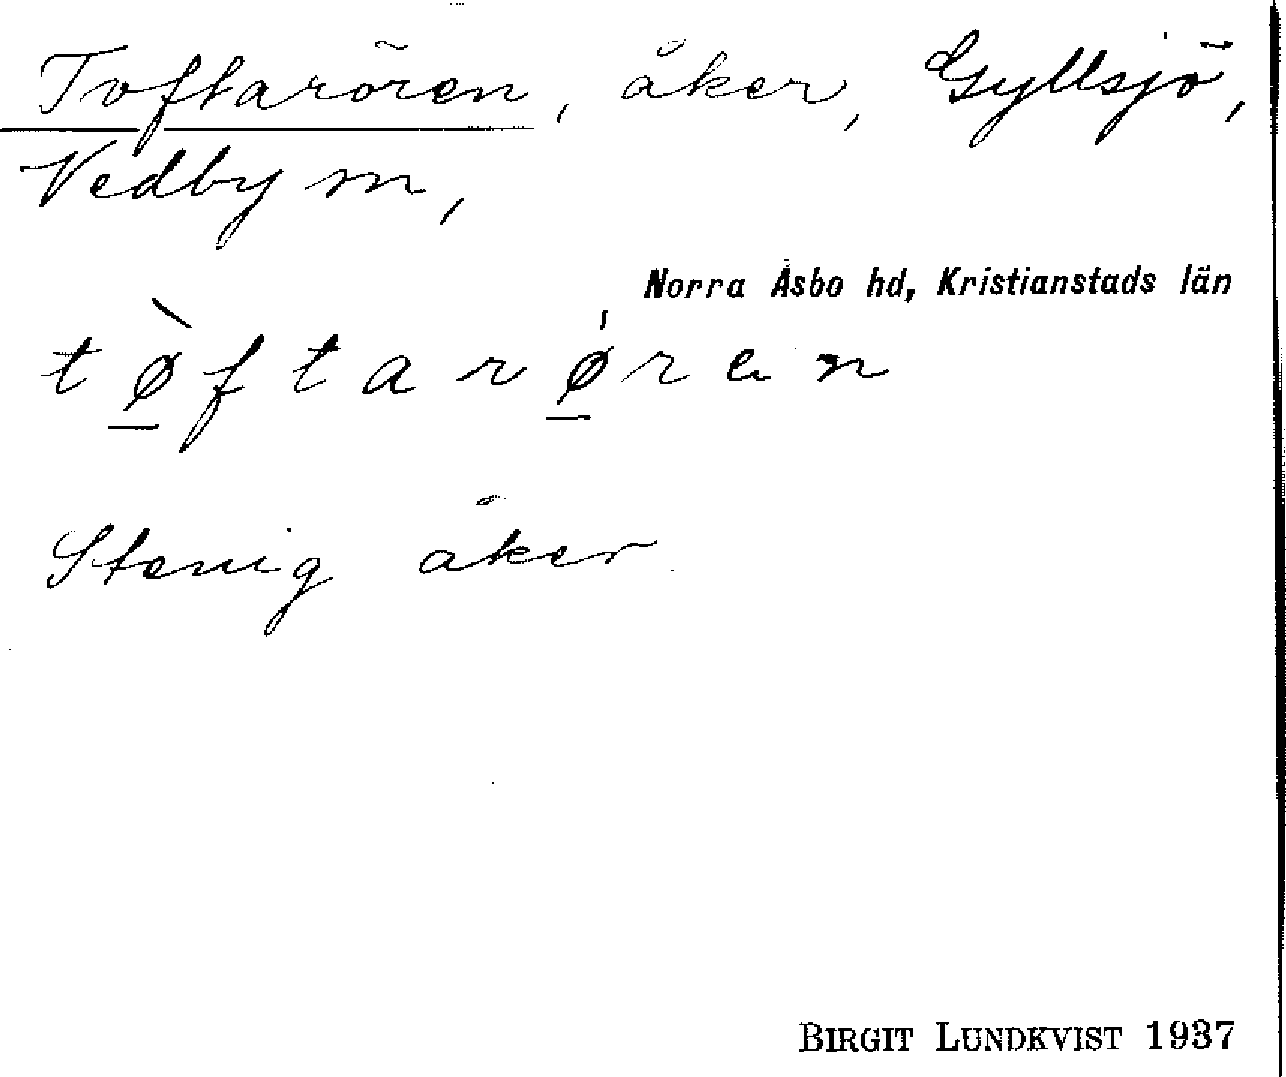 Toftarören, åker, Gyllsjö,
Vedby sn,
Norra Åsbo hd, Kristianstads län
tø̲̀ftarǿ̲ran
Stenig åker
BIRGIT LUNDKVIST 1937